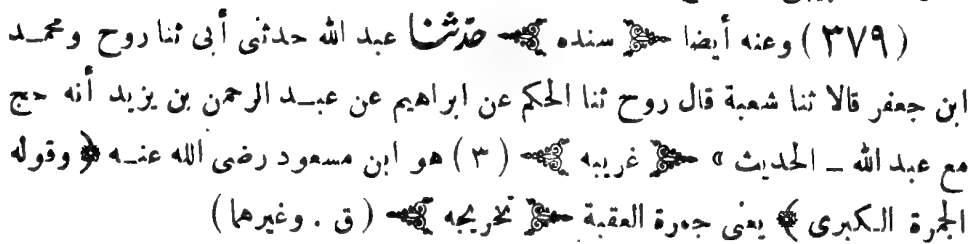 (٣٧٩) وعنه أيضا ﴿ سنده ﴾ حدثنا عبد الله حدثنى أبى ثنا روح ومحمد
ابن جعفر قالا ثنا شعبة قال روح ثنا الحكم عن ابراهيم عن عبد الرحمن بن يزيد أنه حج
مع عبد الله ـ الحديث » ﴿ غريبه ﴾ (٣) هو ابن مسعود رضى الله عنه ﴿ وقوله
الجمرة الكبرى ﴾ يعنى جمرة العقبة ﴿ تخريجه ﴾ (ق . وغيرهما)